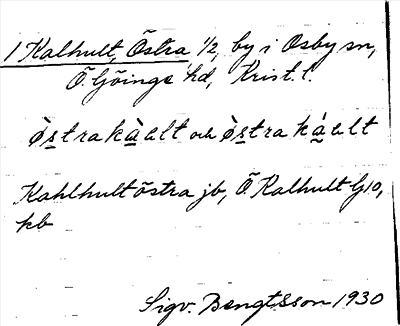 1 Kalhult, Östra 1/2, by i Osby sn,
Ö. Göinge hd, Krist. l.
ò̀strakàelt och ò̀strakáelt
Kahlhult östra jb, Ö Kalhult
kb
Sigv. Bengtsson 1930